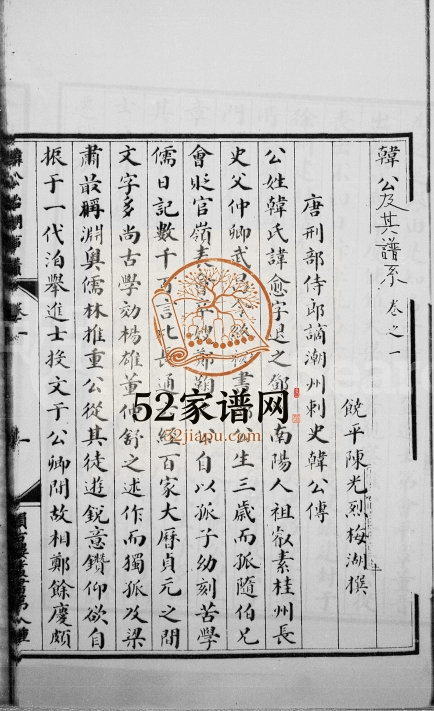 韓公及其譜系 卷之一
饒平陳光烈梅湖撰
唐刑部侍郎謫潮州刺史韓公傳
公姓韓氏諱愈字退之鄧 南陽人祖叡素桂州長
史父仲卿武昌令 秘書 公生三歲而孤隨伯兄
會貶官嶺表會卒嫂鄭 自以孤子幼刻苦學
儒日記數千百言比長通 經百家大曆貞元之間
文字多尚古學効楊雄董仲舒之述作而獨孤及梁
肅最稱淵奧儒林推重公從其徒遊銳意鑽仰欲自
振于一代洎舉進士投文于公卿間故相鄭餘慶頗
卷一
一
52家谱网
52jiapu.com